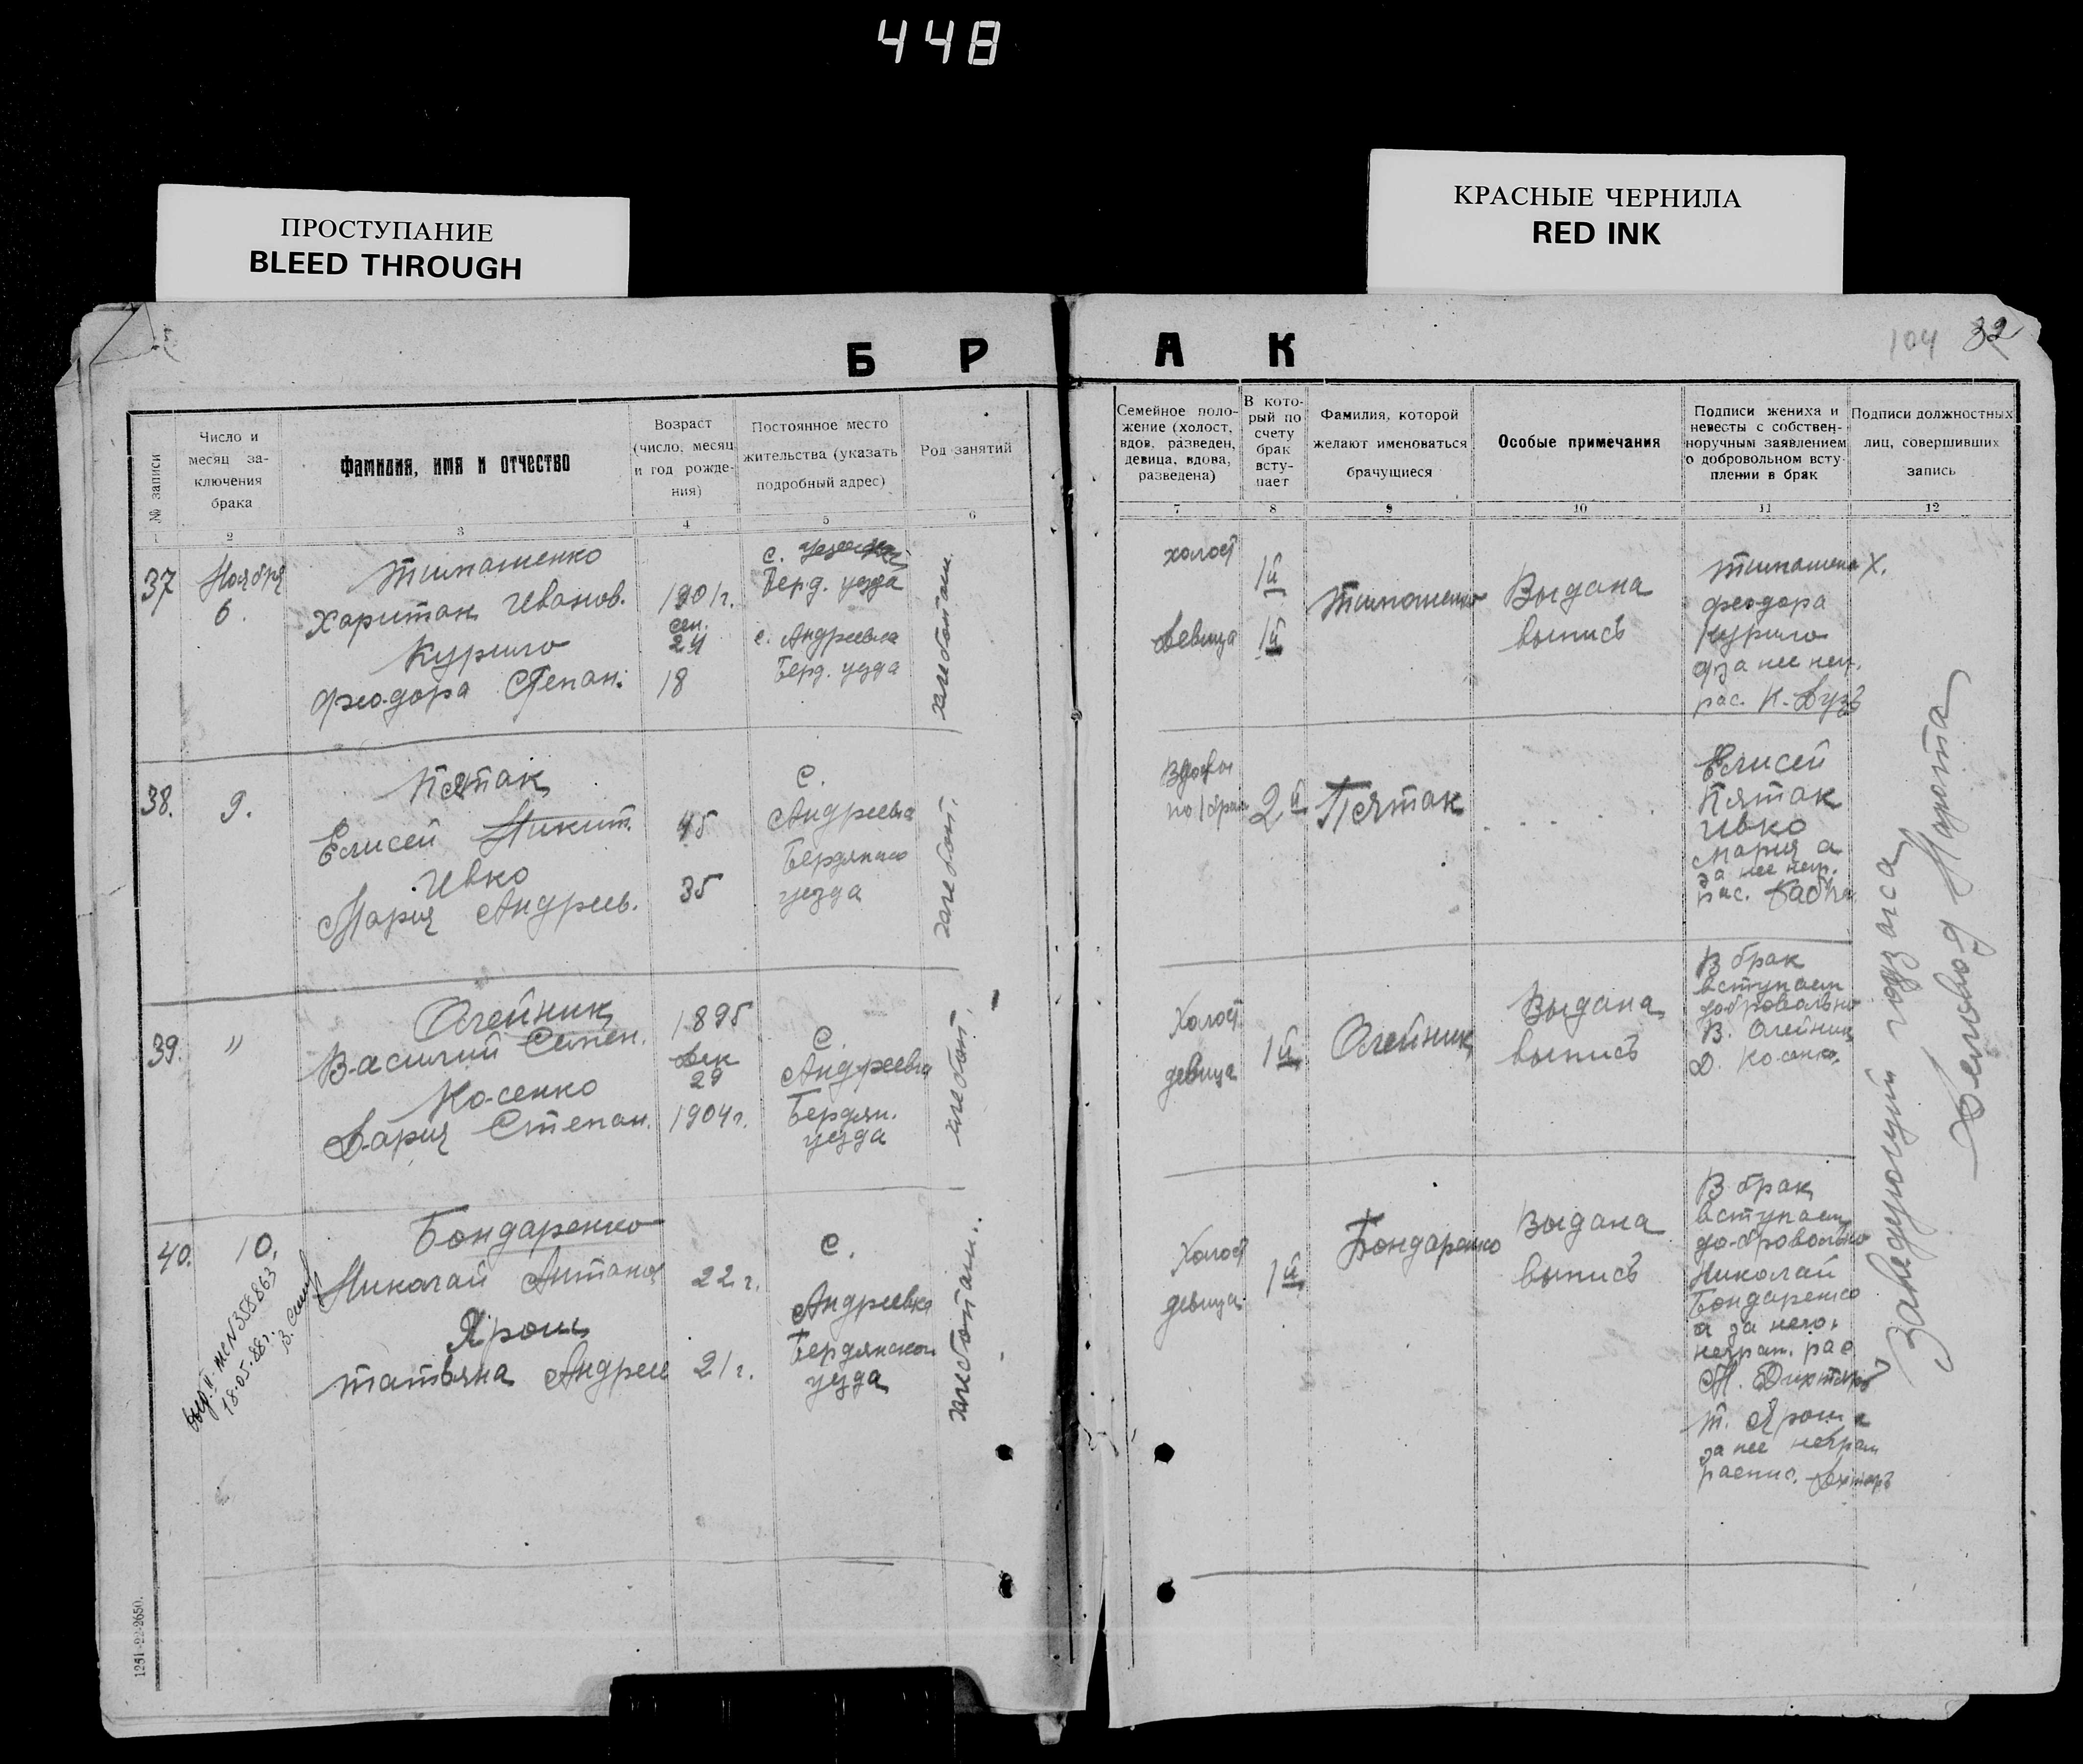 448
ПРОСТУПАНИЕ
BLEED THROUGH
КРАСНЫЕ ЧЕРНИЛА
RED INK
БРАК
104 32
№ записи
Число и
месяц за-
ключения
брака
Фамилия, имя и отчество
Возраст
(число, месяц
и год рожде-
ния)
Постоянное место
жительства (указать
подробный адрес)
Род занятий
Семейное поло-
жение (холост,
вдов, разведен,
девица, вдова,
разведена)
В кото-
рый по
счету
брак
всту-
пает
Фамилия, которой
желают именоваться
брачущиеся
Особые примечания
Подписи жениха и
невесты с собствен-
норучным заявлением
о добровольном всту-
плении в брак
Подписи должностных
лиц, совершивших
запись
1 2 3 4 5 6 7 8 9 10 11 12
37
Ноября
6.
Тимошенко
Харитон Иванов.
Курило
Феодора Степан.
1901г.
сен.
24
18
с.
Берд. уезда
с. Андреевка
Берд. уезда
хлеботаш.
холост
девица
1й
1й
Тимошенко
Выдана
выпись
Тимошенко Х.
Феодора
Курило
а за нее неч.
рас. К.
38.
9.
Пятак
Елисей Никит.
Ивко
Мария Андреев.
45
35
с.
Андреевка
Бердянско
уезда
хлебоп.
2й
Пятак
Елисей
Пятак
Ивко
Мария а
за нее негр.
рас.
39.
"
Олейник
Василий Семен.
Косенко
Дария Степан.
1895
Дек
29
1904г.
с.
Андреевка
Бердян.
уезда
хлебоп.
Холост
девица
1й
Олейник
Выдана
выпись
В брак
вступаем
добровольно
В. Олейник
Д. Косенко.
40.
10.
18-05-88г.
Бондаренко
Николай Антонов
Ярош
Татьяна Андрее
22 г.
21 г.
с.
Андреевка
Бердянског
уезда
Холост
девица
1й
Бондаренко
Выдана
выпись
В брак
вступаем
добровольно
Николай
Бондаренко
а за него
неграм. рас
Т. Ярош а
за нее неграм
распис.
Заведующий подзагса
Деловод
1251-22-2650.